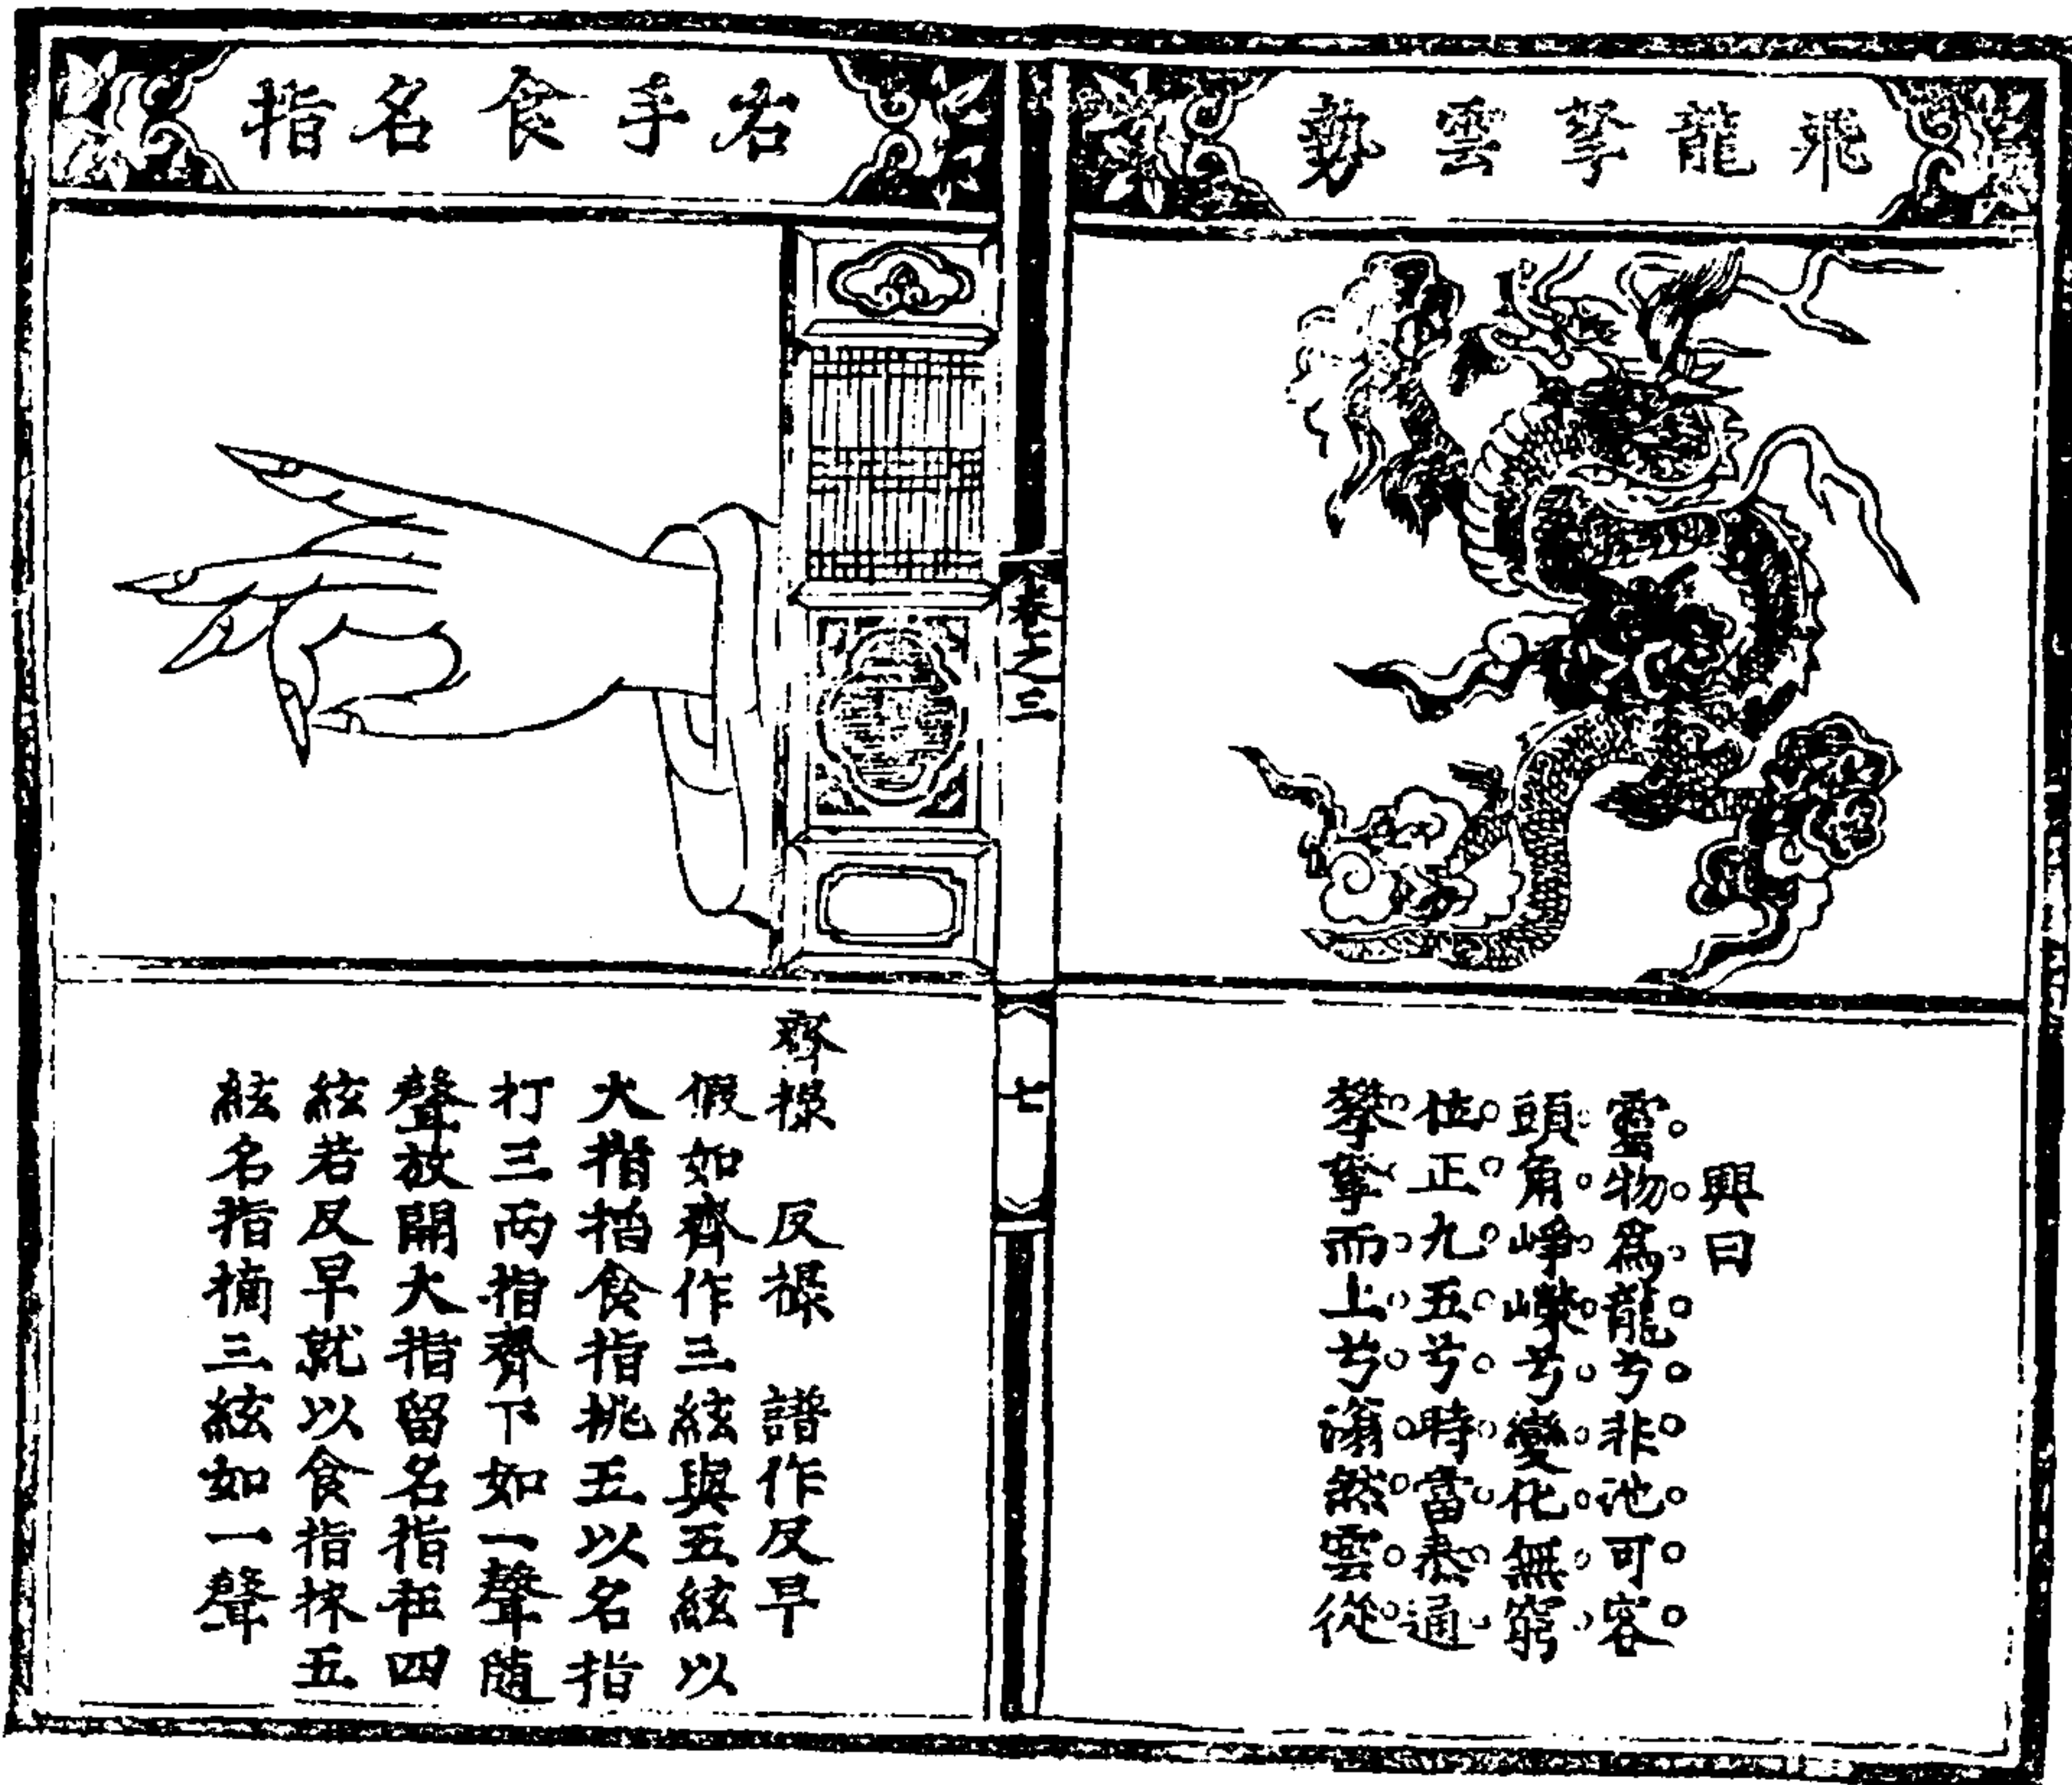 飛龍拏雲勢
興曰
靈物爲龍兮非池可容
頭角崢嶸兮變化無窮
位正九五兮時當泰通
攀拏而上兮滃然雲從
卷之三
七
右手食名指
齊撮　反撮　譜作反早
假如齊作三絃與五絃以
大指搯食指挑五以名指
打三兩指齊下如一聲随
聲放開大指留名指在四
絃若反早就以食指抹五
絃名指摘三絃如一聲